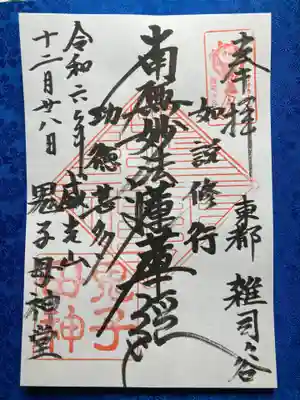 奉拝
東都 雑司ヶ谷
如説修行
南無妙法蓮華経
功徳甚多
威光山
鬼子母神堂
令和六年
十二月廿八日
鬼子
母神